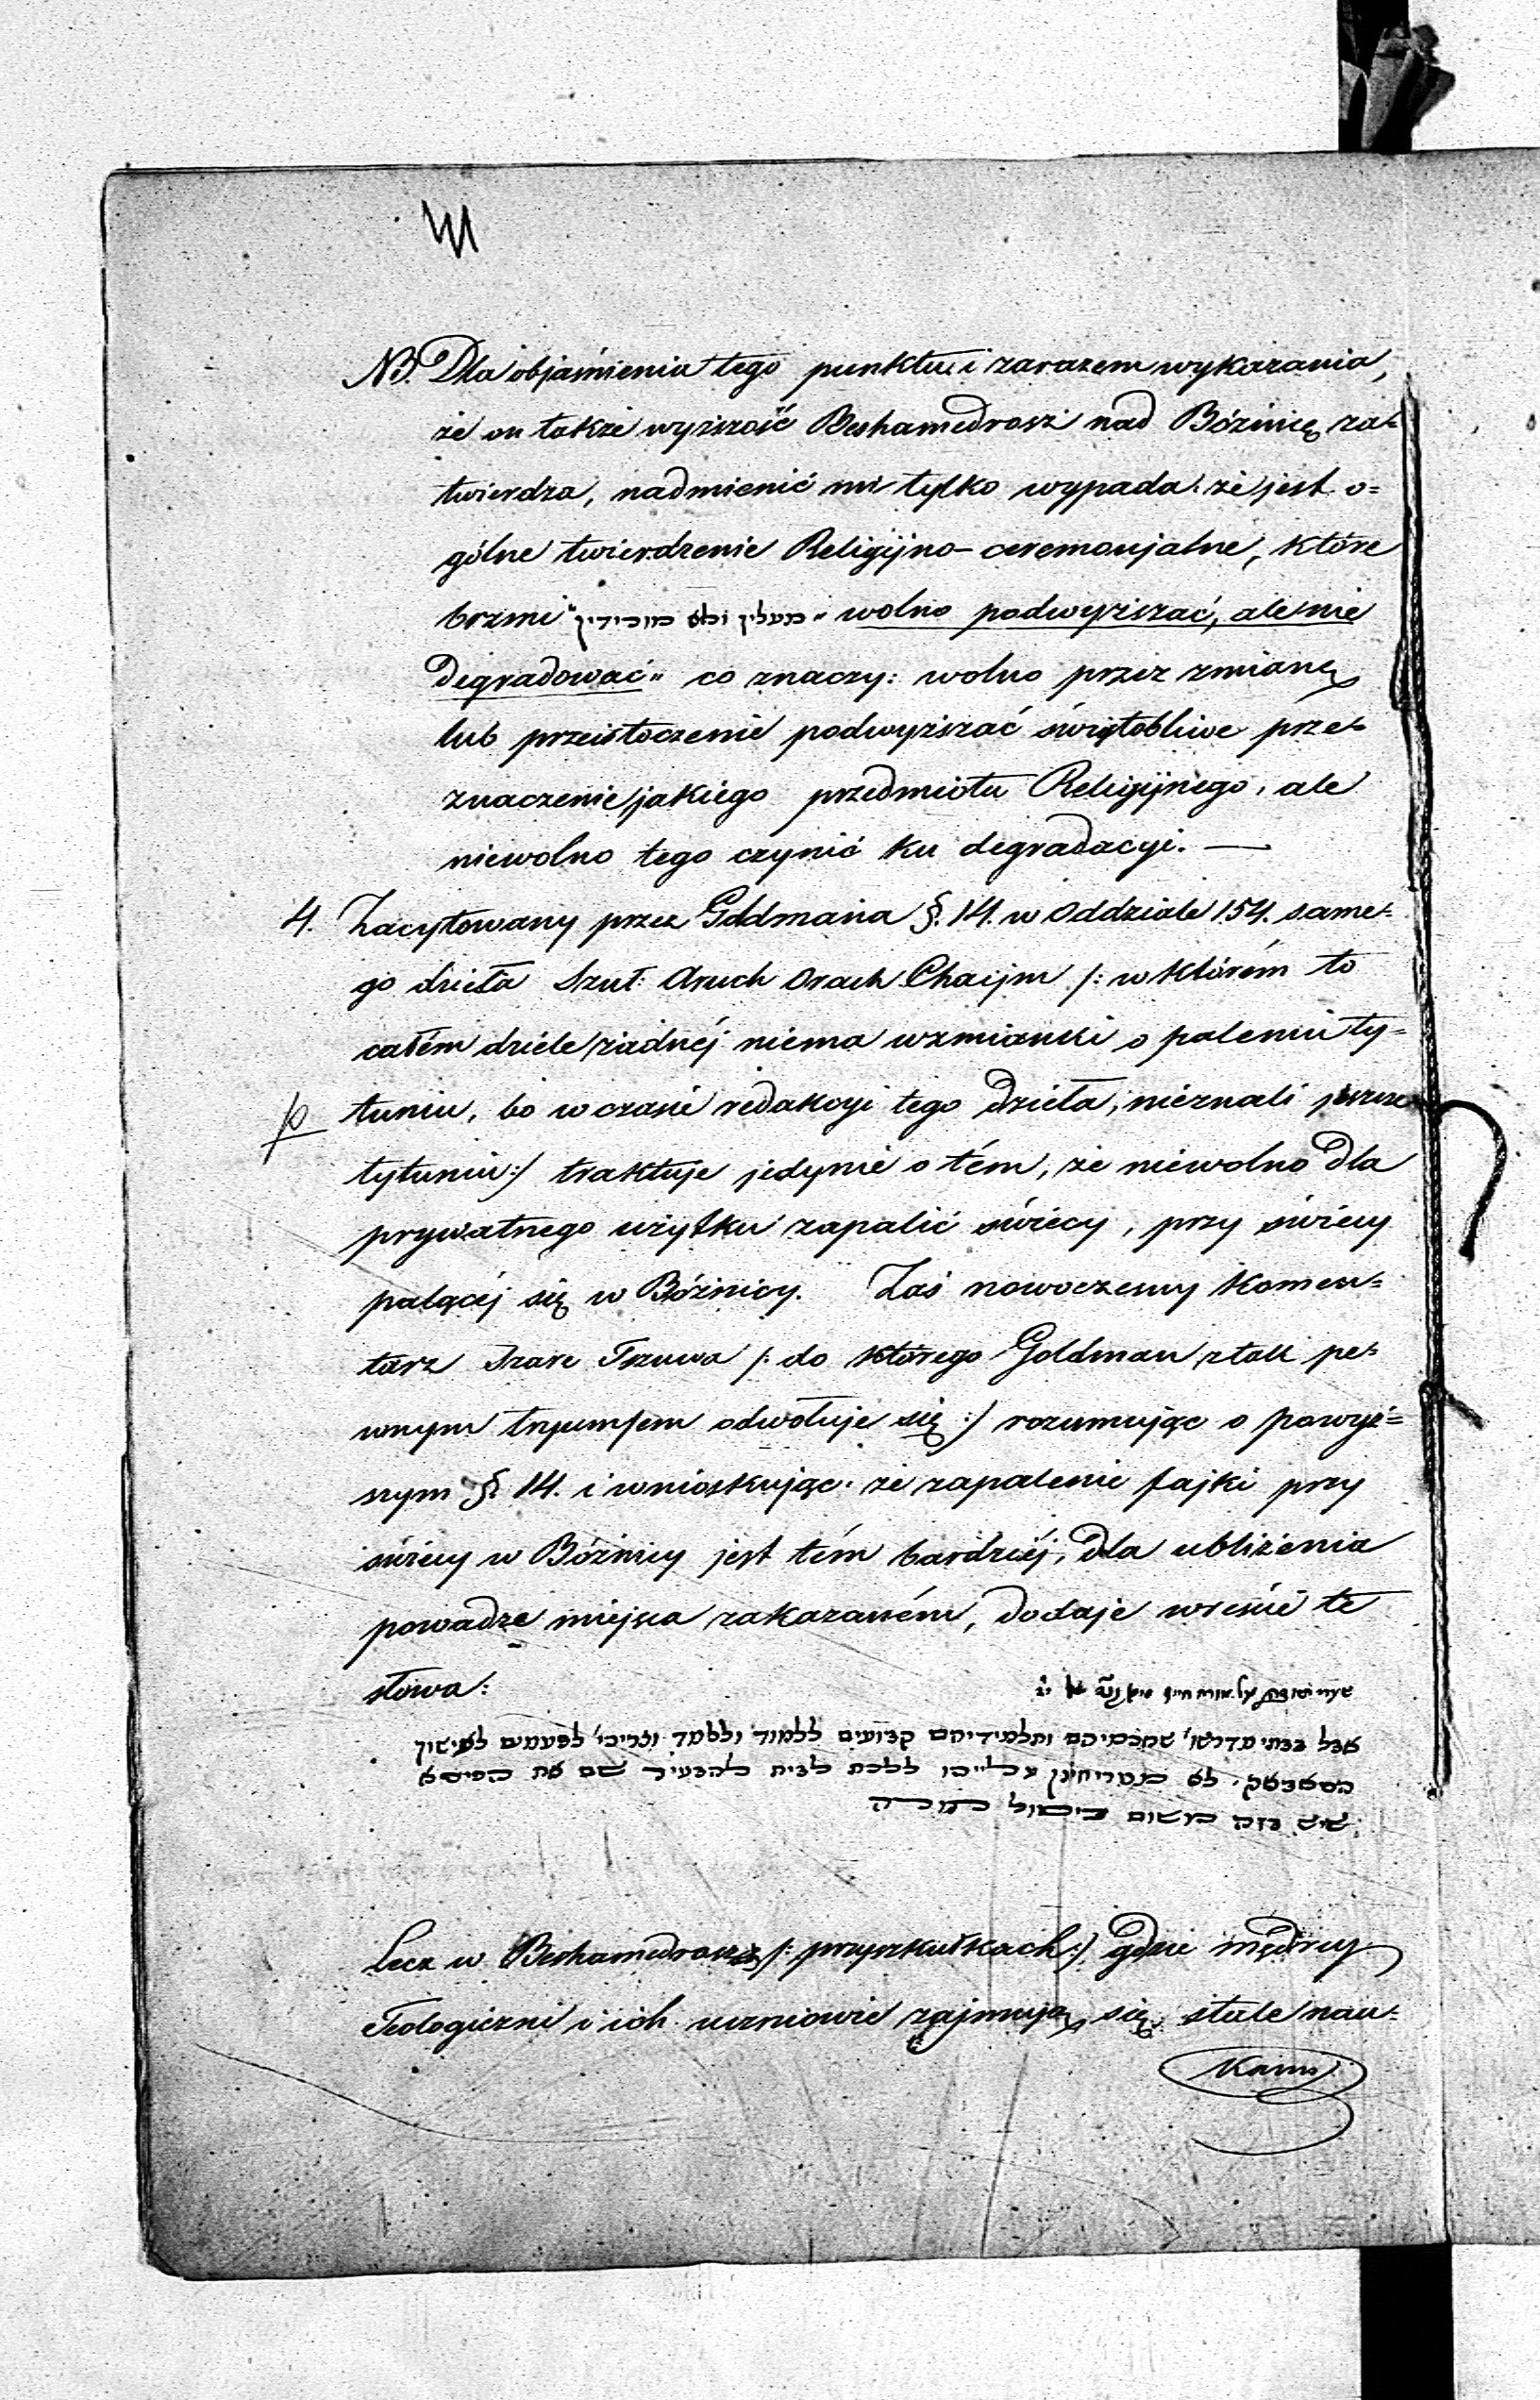 NB. Dla objaśnienia tego punktu i zarazem wykazania,
że on także wyższość Beshamedrosz nad Bóżnicę za=
twierdza, nadmienić mi tylko wypada: że jest o=
gólne twierdzenie Religijno-ceremonjalne, które
brzmi "מעלין ולא מורידין" wolno podwyższać, ale nie
degradować" co znaczy: wolno przez zmianę
lub przeistoczenie podwyższać świętobliwe prze=
znaczenie jakiego przedmiotu Religijnego, ale
niewolno tego czynić ku degradacyi. —
4. Zacytowany przez Goldmana §. 14. w Oddziale 154. same=
go dzieła Szul: Aruch Orach Chaijm /: w którém to
całém dziele żadnéj niema wzmianki o paleniu ty=
tuniu, bo w czasie redakcyi tego dzieła, nieznali jeszcze
tytuniu :/ traktuje jedynie o tém, że niewolno dla
prywatnego użytku zapalić świecy, przy świecy
palącéj się w Bóżnicy. Zaś nowoczesny komen=
tarz Szare Tszuwa /: do którego Goldman z tak pe=
wnym tryumfem odwołuje się :/ rozumując o powyż=
szym §. 14. i wnioskując: że zapalenie fajki przy
świecy w Bóżnicy jest tém bardziéj, dla ubliżenia
powadze miejsca zakazaném, dodaje wreście te
słowa: שערי תשובה על אורח חיים
אבל בבתי מדרשו' שחכמיהם ותלמידיהם קבועים ללמוד וללמד וצריכי' לפעמים לעישון
הטאבאק, לא מטריחינן עלייהו ללכת לבית להבעיר שם את הפיפא
שיש בזה משום ביטול תורה
Lecz w Beshamedrosz /: przyszkułkach :/ gdzie mędrcy
Teologiczni i ich uczniowie zajmują się stale nau=
kami